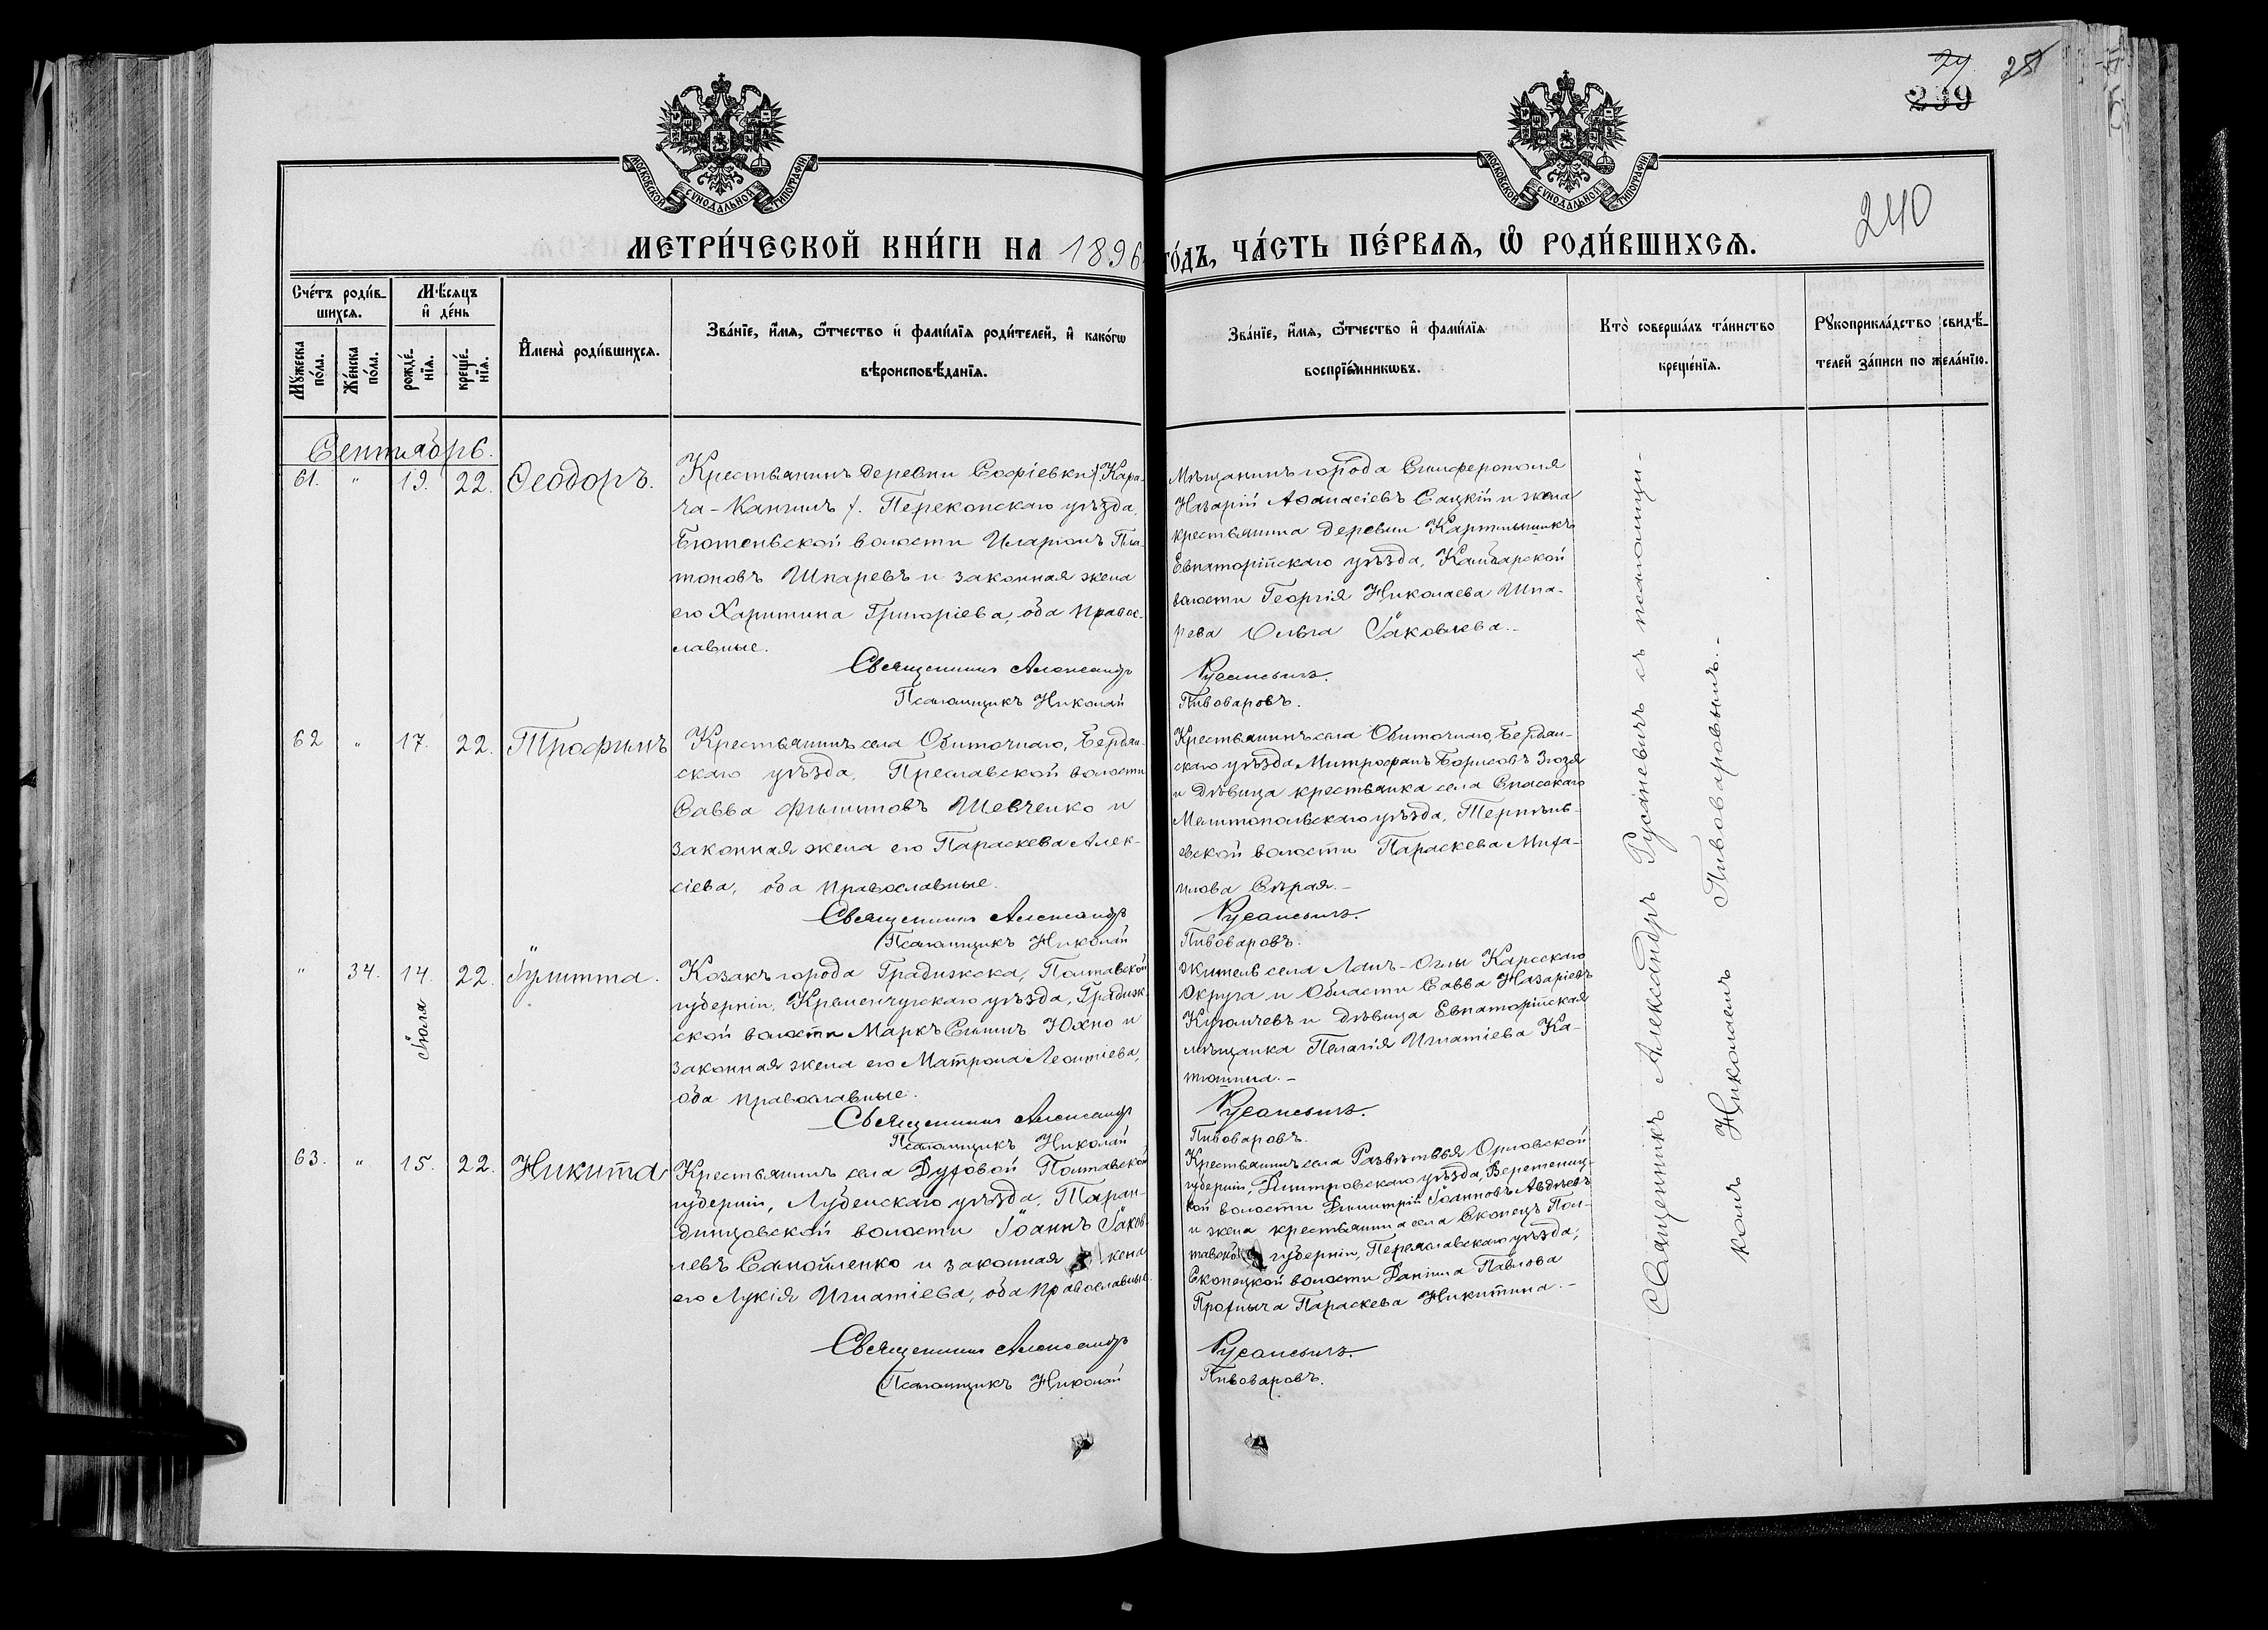 27 28
239
240
МОСКОВСКОЙ СѴНОДАЛЬНОЙ ТИПОГРАФІИ
МОСКОВСКОЙ СѴНОДАЛЬНОЙ ТИПОГРАФІИ
МЕТРИ́ЧЕСКОЙ КНИ́ГИ НА 1896 ГО́ДЪ, ЧА́СТЬ ПЕ́РВАѦ, Ѽ РОДИ́ВШИХСѦ.
Сче́тъ роди́в-
шихсѧ.
Мꙋ́жеска по́ла.
Же́нска по́ла.
Мѣ́сяцъ
и҆ де́нь
рожде́-
нїѧ.
креще́-
нїѧ.
И҆мена̀ роди́вшихсѧ.
Зва́нїе, и҆́мѧ, ѻ҆́тчество и҆ фами́лїѧ роди́телей, и҆ како́гѡ
вѣроисповѣ́данїѧ.
Зва́нїе, и҆́мѧ, ѻ҆́тчество и҆ фами́лїѧ
воспрїе́мникѡвъ.
Кто̀ соверша́лъ та́инство
креще́нїѧ.
Рꙋкоприкла́дство свидѣ́-
телей за́писи по жела́нїю.
Сентябрь.
61. " 19. 22. Ѳеодоръ.
Крестьянинъ деревни Софіевки /Кара-
ча-Кангилъ/. Перекопскаго уѣзда,
Бютеньской волости Иларіонъ Пла-
тоновъ Шпаревъ и законная жена
его Харитина Григоріева, оба право-
славные.
Священникъ Александръ
Псаломщикъ Николай
Мѣщанинъ города Симферополя
Назарій Аѳанасіевъ Сацкій и жена
крестьянина деревни
Евпаторійскаго уѣзда, Камбарской
волости Георгія Николаева Шпа-
рева Ольга Іаковлева.-
Русаневичъ.
Пивоваровъ.
62 " 17. 22. Трофимъ
Крестьянинъ села Обиточнаго, Бердян-
скаго уѣзда, Преславской волости
Савва Филиповъ Шевченко и
законная жена его Параскева Алек-
сіева, оба православные.
Священникъ Александръ
Псаломщикъ Николай
Крестьянинъ села Обиточнаго, Бердян-
скаго уѣзда Митрофанъ Борисовъ Зюзя
и дѣвица крестьянка села Спасскаго
Мелитопольскаго уѣзда, Терпѣнь-
евской волости Параскева Миха-
илова Сѣрая.-
Русаневичъ.
Пивоваровъ.
" 34. 14. Іюля 22. Іулитта.
Козакъ города Градижска, Полтавской
губерніи, Кременчугскаго уѣзда, Градиж-
ской волости Маркъ Юхно и
законная жена его Матрона Леонтіева,
оба православные.
Священникъ Александръ
Псаломщикъ Николай
Житель села Карсскаго
Округа и Области Савва Назаріевъ
и дѣвица Евпаторійская
мѣщанка Пелагія Игнатіева Ка-

Русаневичъ.
Пивоваровъ.
63. " 15. 22. Никита
Крестьянинъ села Духовой Полтавской
губерніи, Лубенскаго уѣзда, Таран-
динцовской волости Іоаннъ Іаков-
левъ Самойленко и законная жена
его Лукія Игнатіева, оба православные.
Священникъ Александръ
Псаломщикъ Николай
Крестьянинъ села Развѣтвья Орловской
губерніи, Дмитровскаго уѣзда, Веретениц-
кой волости Димитрій Іоанновъ Авдѣевъ
и жена крестьянина села Скопецъ Пол-
тавской губерніи, Переяславскаго уѣзда,
Скопецкой волости Даніила Павлова
Параскева Никитина.-
Русаневичъ.
Пивоваровъ.
Священникъ Александръ Русаневичъ съ псаломщи-
комъ Николаемъ Пивоваровымъ.-